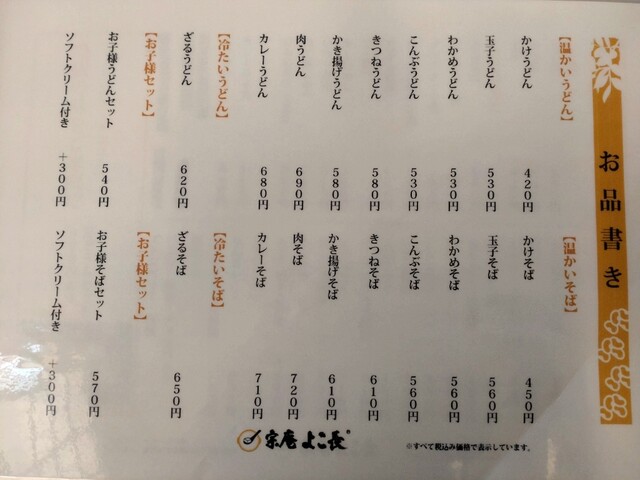 お品書き
【温かいうどん】
かけうどん 420円
玉子うどん 530円
わかめうどん 530円
こんぶうどん 530円
きつねうどん 580円
かき揚げうどん 580円
肉うどん 690円
カレーうどん 680円
【冷たいうどん】
ざるうどん 620円
【お子様セット】
お子様うどんセット 540円
ソフトクリーム付き +300円
【温かいそば】
かけそば 450円
玉子そば 560円
わかめそば 560円
こんぶそば 560円
きつねそば 610円
かき揚げそば 610円
肉そば 720円
カレーそば 710円
【冷たいそば】
ざるそば 650円
【お子様セット】
お子様そばセット 570円
ソフトクリーム付き +300円
※すべて税込み価格で表示しています。
宗庵 よこ長